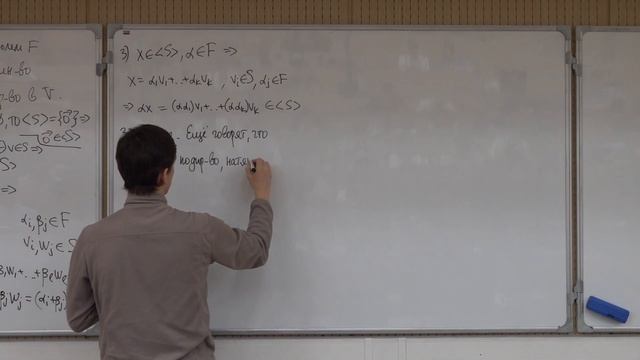 олем F
ин-во
р-во в V.
то <S>={0⃗}⇒
0⃗∈<S>
∃v∈S⇒
⇒
αᵢ,βⱼ∈F
vᵢ,wⱼ∈S
βⱼwⱼ=(αᵢ+βⱼ)
3) x∈<S>, α∈F ⇒
x=α₁v₁+..+αₖvₖ , vᵢ∈S, αⱼ∈F
⇒ αx = (αα₁)v₁+..+(ααₖ)vₖ ∈<S>
Ещё говорят, что
подпр-во, натя